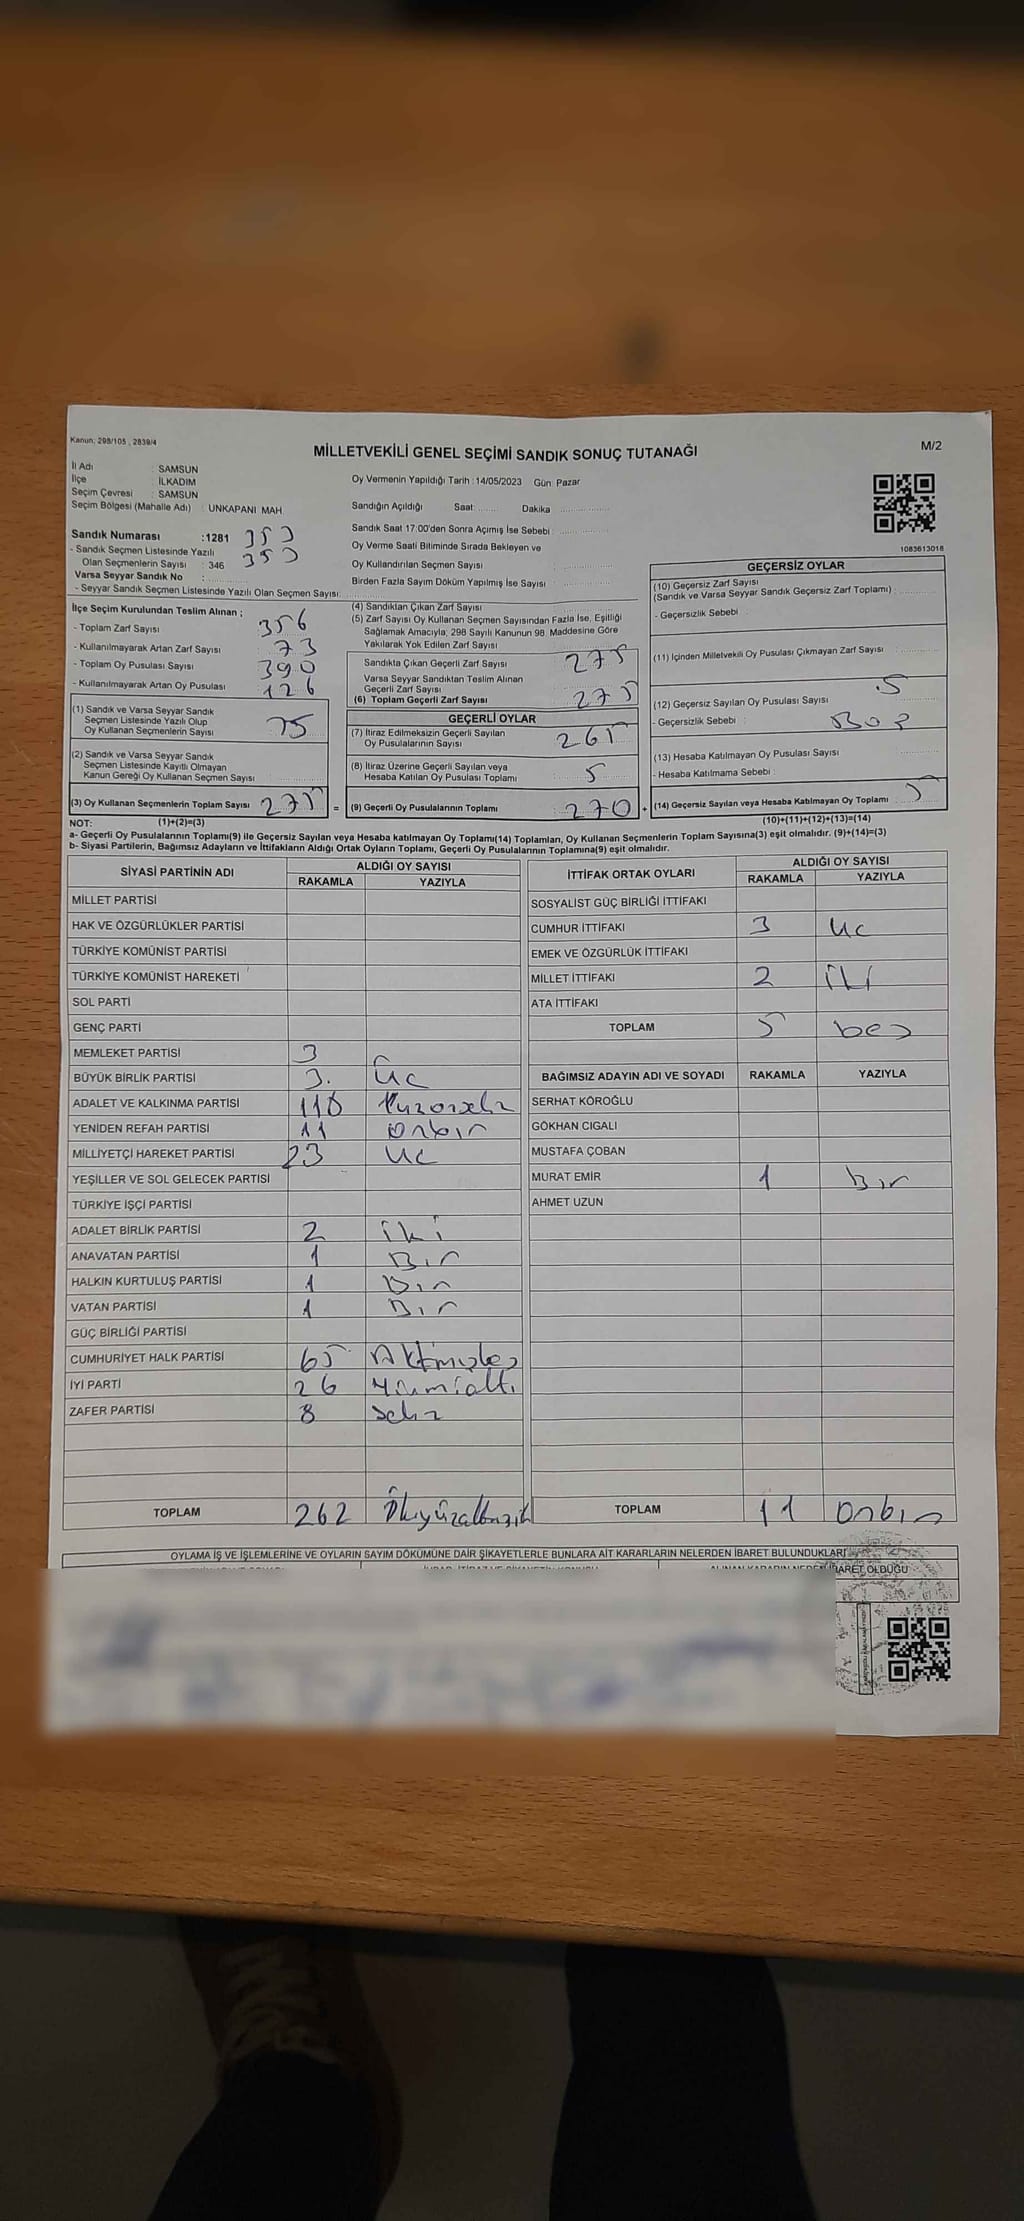 Kanun; 298/105 , 2839/4
MİLLETVEKİLİ GENEL SEÇİMİ SANDIK SONUÇ TUTANAĞI
M/2
İl Adı : SAMSUN
İlçe : İLKADIM
Seçim Çevresi : SAMSUN
Seçim Bölgesi (Mahalle Adı) : UNKAPANI MAH
Oy Vermenin Yapıldığı Tarih : 14/05/2023 Gün: Pazar
Sandığın Açıldığı Saat: Dakika
Sandık Saat 17:00'den Sonra Açımış İse Sebebi :
Oy Verme Saati Bitiminde Sırada Bekleyen ve
Oy Kullandırılan Seçmen Sayısı
Birden Fazla Sayım Döküm Yapılmış İse Sayısı
1083613018
Sandık Numarası :1281 353
- Sandık Seçmen Listesinde Yazılı 353
Olan Seçmenlerin Sayısı : 346
Varsa Seyyar Sandık No :
- Seyyar Sandık Seçmen Listesinde Yazılı Olan Seçmen Sayısı:
İlçe Seçim Kurulundan Teslim Alınan ;
- Toplam Zarf Sayısı 356
- Kullanılmayarak Artan Zarf Sayısı 73
- Toplam Oy Pusulası Sayısı 390
- Kullanılmayarak Artan Oy Pusulası 126
(1) Sandık ve Varsa Seyyar Sandık
Seçmen Listesinde Yazılı Olup
Oy Kullanan Seçmenlerin Sayısı 75
(2) Sandık ve Varsa Seyyar Sandık
Seçmen Listesinde Kayıtlı Olmayan
Kanun Gereği Oy Kullanan Seçmen Sayısı
(3) Oy Kullanan Seçmenlerin Toplam Sayısı 275 =
(4) Sandıktan Çıkan Zarf Sayısı
(5) Zarf Sayısı Oy Kullanan Seçmen Sayısından Fazla İse, Eşitliği
Sağlamak Amacıyla; 298 Sayılı Kanunun 98. Maddesine Göre
Yakılarak Yok Edilen Zarf Sayısı
Sandıkta Çıkan Geçerli Zarf Sayısı 275
Varsa Seyyar Sandıktan Teslim Alınan
Geçerli Zarf Sayısı
(6) Toplam Geçerli Zarf Sayısı 275
GEÇERLİ OYLAR
(7) İtiraz Edilmeksizin Geçerli Sayılan
Oy Pusulalarının Sayısı 265
(8) İtiraz Üzerine Geçerli Sayılan veya
Hesaba Katılan Oy Pusulası Toplamı 5
(9) Geçerli Oy Pusulalarının Toplamı 270 +
GEÇERSİZ OYLAR
(10) Geçersiz Zarf Sayısı
(Sandık ve Varsa Seyyar Sandık Geçersiz Zarf Toplamı) :
- Geçersizlik Sebebi :
(11) İçinden Milletvekili Oy Pusulası Çıkmayan Zarf Sayısı
5
(12) Geçersiz Sayılan Oy Pusulası Sayısı
- Geçersizlik Sebebi : Boş
(13) Hesaba Katılmayan Oy Pusulası Sayısı
- Hesaba Katılmama Sebebi :
(14) Geçersiz Sayılan veya Hesaba Katılmayan Oy Toplamı 5
NOT: (1)+(2)=(3) (10)+(11)+(12)+(13)=(14)
a- Geçerli Oy Pusulalarının Toplamı(9) ile Geçersiz Sayılan veya Hesaba katılmayan Oy Toplamı(14) Toplamları, Oy Kullanan Seçmenlerin Toplam Sayısına(3) eşit olmalıdır. (9)+(14)=(3)
b- Siyasi Partilerin, Bağımsız Adayların ve İttifakların Aldığı Ortak Oyların Toplamı, Geçerli Oy Pusulalarının Toplamına(9) eşit olmalıdır.
SİYASİ PARTİNİN ADI ALDIĞI OY SAYISI
RAKAMLA YAZIYLA
MİLLET PARTİSİ
HAK VE ÖZGÜRLÜKLER PARTİSİ
TÜRKİYE KOMÜNİST PARTİSİ
TÜRKİYE KOMÜNİST HAREKETİ
SOL PARTİ
GENÇ PARTİ
MEMLEKET PARTİSİ 3
BÜYÜK BİRLİK PARTİSİ 3. Üc
ADALET VE KALKINMA PARTİSİ 118
YENİDEN REFAH PARTİSİ 11 onbir
MİLLİYETÇİ HAREKET PARTİSİ 23 uc
YEŞİLLER VE SOL GELECEK PARTİSİ
TÜRKİYE İŞÇİ PARTİSİ
ADALET BİRLİK PARTİSİ 2 iki
ANAVATAN PARTİSİ 1 Bir
HALKIN KURTULUŞ PARTİSİ 1 Bir
VATAN PARTİSİ 1 Bir
GÜÇ BİRLİĞİ PARTİSİ
CUMHURİYET HALK PARTİSİ 65 Altmışbeş
İYİ PARTİ 26
ZAFER PARTİSİ 8
TOPLAM 262
İTTİFAK ORTAK OYLARI ALDIĞI OY SAYISI
RAKAMLA YAZIYLA
SOSYALİST GÜÇ BİRLİĞİ İTTİFAKI
CUMHUR İTTİFAKI 3 uc
EMEK VE ÖZGÜRLÜK İTTİFAKI
MİLLET İTTİFAKI 2 iki
ATA İTTİFAKI
TOPLAM 5 beş
BAĞIMSIZ ADAYIN ADI VE SOYADI RAKAMLA YAZIYLA
SERHAT KÖROĞLU
GÖKHAN CIGALI
MUSTAFA ÇOBAN
MURAT EMİR 1 Bir
AHMET UZUN
TOPLAM 11 Onbir
OYLAMA İŞ VE İŞLEMLERİNE VE OYLARIN SAYIM DÖKÜMÜNE DAİR ŞİKAYETLERLE BUNLARA AİT KARARLARIN NELERDEN İBARET BULUNDUKLARI
ALINAN KARARIN NEDEN İBARET OLDUĞU